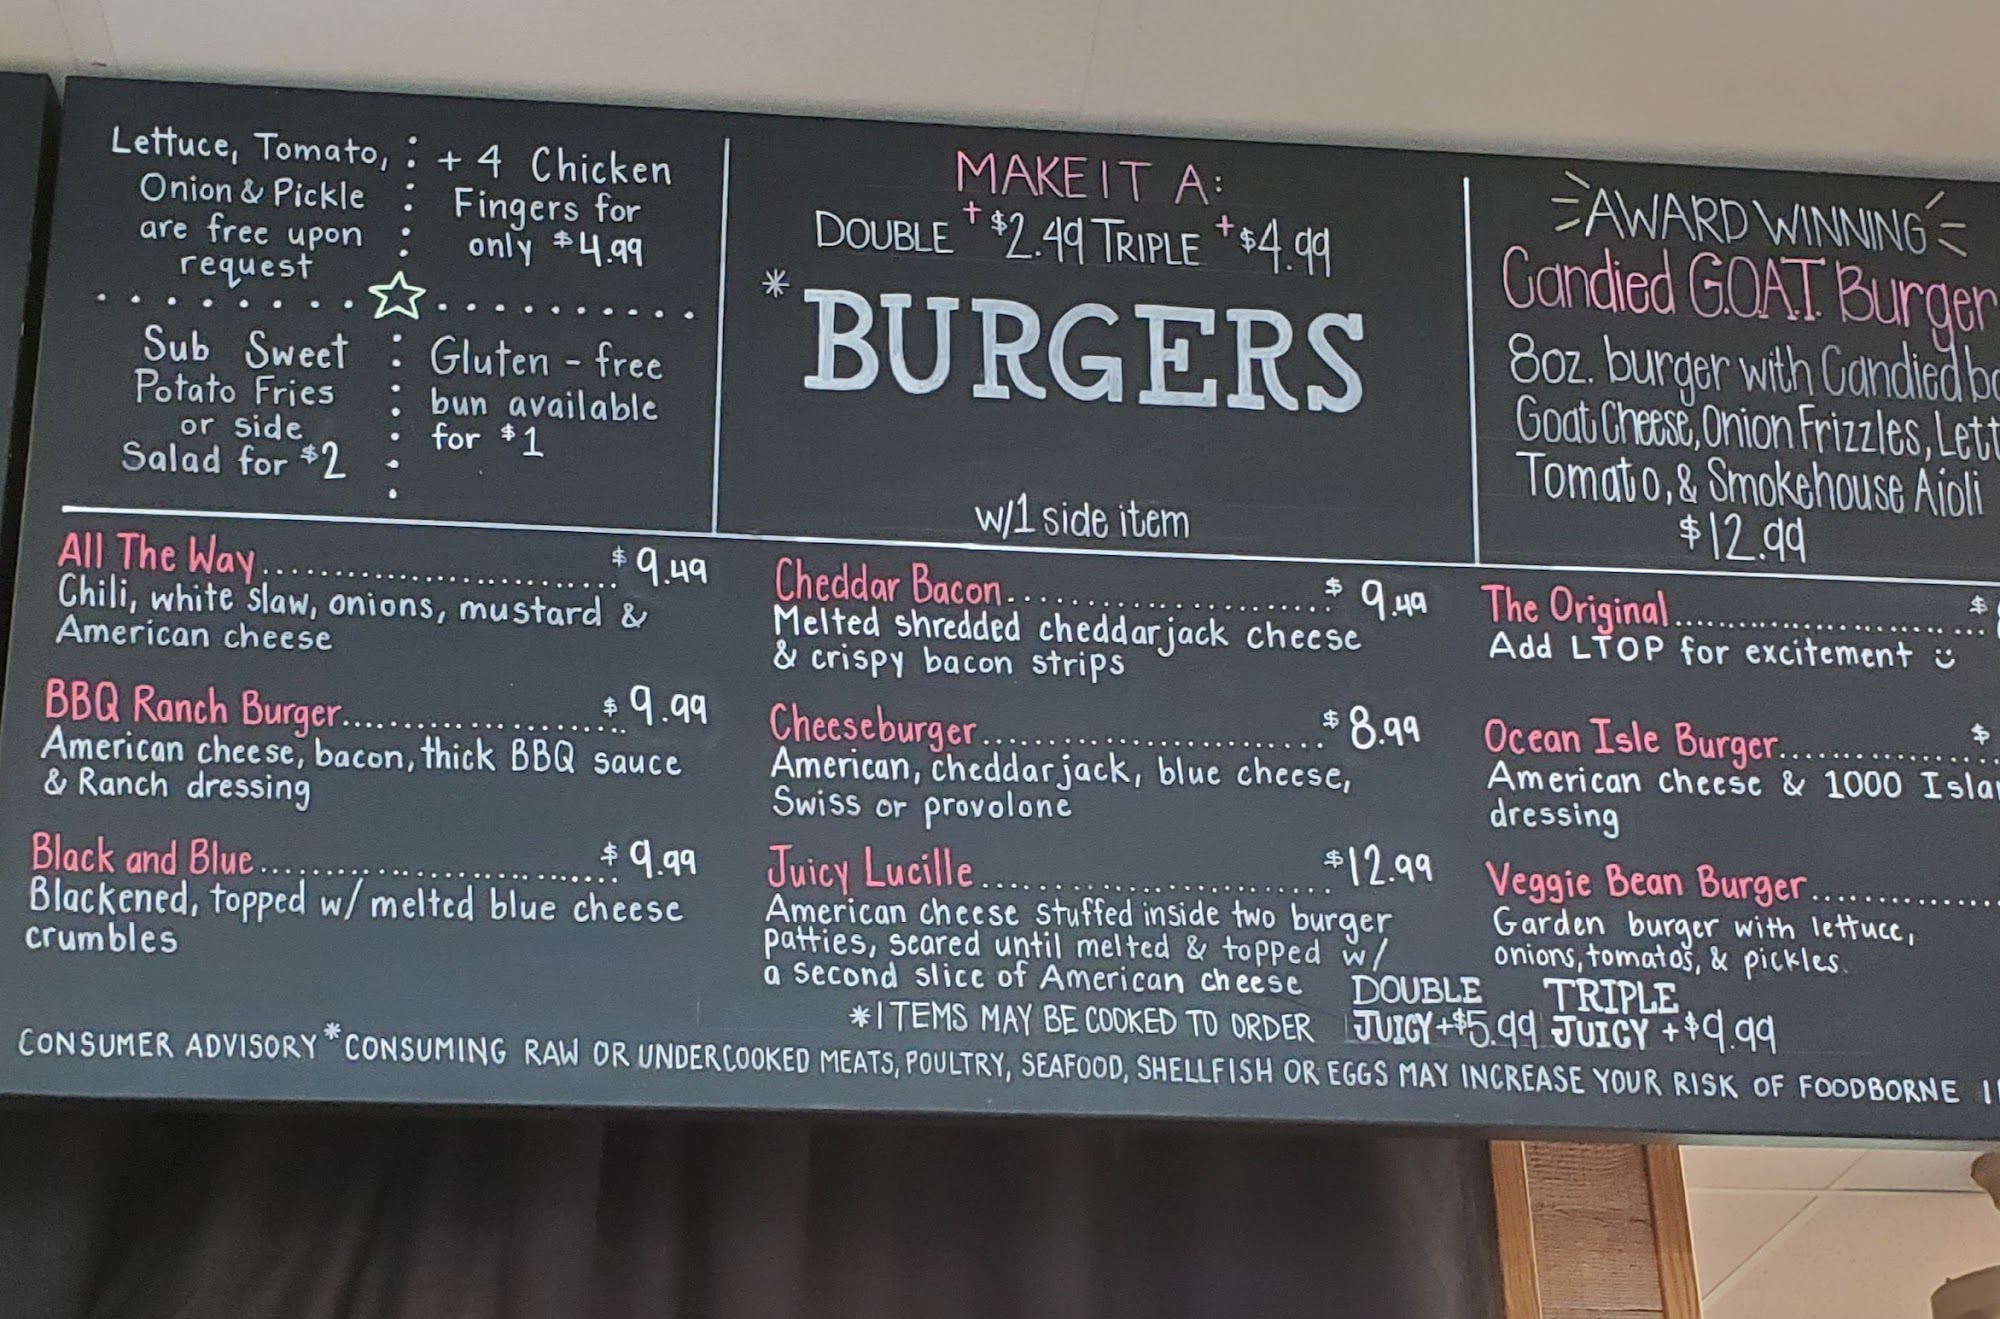 Lettuce, Tomato,
Onion & Pickle
are free upon
request
+ 4 Chicken
Fingers for
only $4.99
Sub Sweet
Potato Fries
or side
Salad for $2
Gluten - free
bun available
for $1
MAKE IT A:
DOUBLE +$2.49 TRIPLE +$4.99
*BURGERS
w/1 side item
AWARD WINNING
Candied G.O.A.T. Burger
8oz. burger with Candied
Goat Cheese, Onion Frizzles,
Tomato, & Smokehouse Aioli
$12.99
All The Way.......................... $9.49
Chili, white slaw, onions, mustard &
American cheese
BBQ Ranch Burger.................... $9.99
American cheese, bacon, thick BBQ sauce
& Ranch dressing
Black and Blue.......................... $9.99
Blackened, topped w/ melted blue cheese
crumbles
Cheddar Bacon........................ $9.49
Melted shredded cheddar jack cheese
& crispy bacon strips
Cheeseburger.......................... $8.99
American, cheddar jack, blue cheese,
Swiss or provolone
Juicy Lucille.......................... $12.99
American cheese stuffed inside two burger
patties, seared until melted & topped w/
a second slice of American cheese
The Original.......................... $
Add LTOP for excitement
Ocean Isle Burger.................. $
American cheese & 1000
dressing
Veggie Bean Burger................
Garden burger with lettuce,
onions, tomatos, & pickles.
DOUBLE
JUICY +$5.99
TRIPLE
JUICY +$9.99
*ITEMS MAY BE COOKED TO ORDER
CONSUMER ADVISORY *CONSUMING RAW OR UNDERCOOKED MEATS, POULTRY, SEAFOOD, SHELLFISH OR EGGS MAY INCREASE YOUR RISK OF FOODBORNE